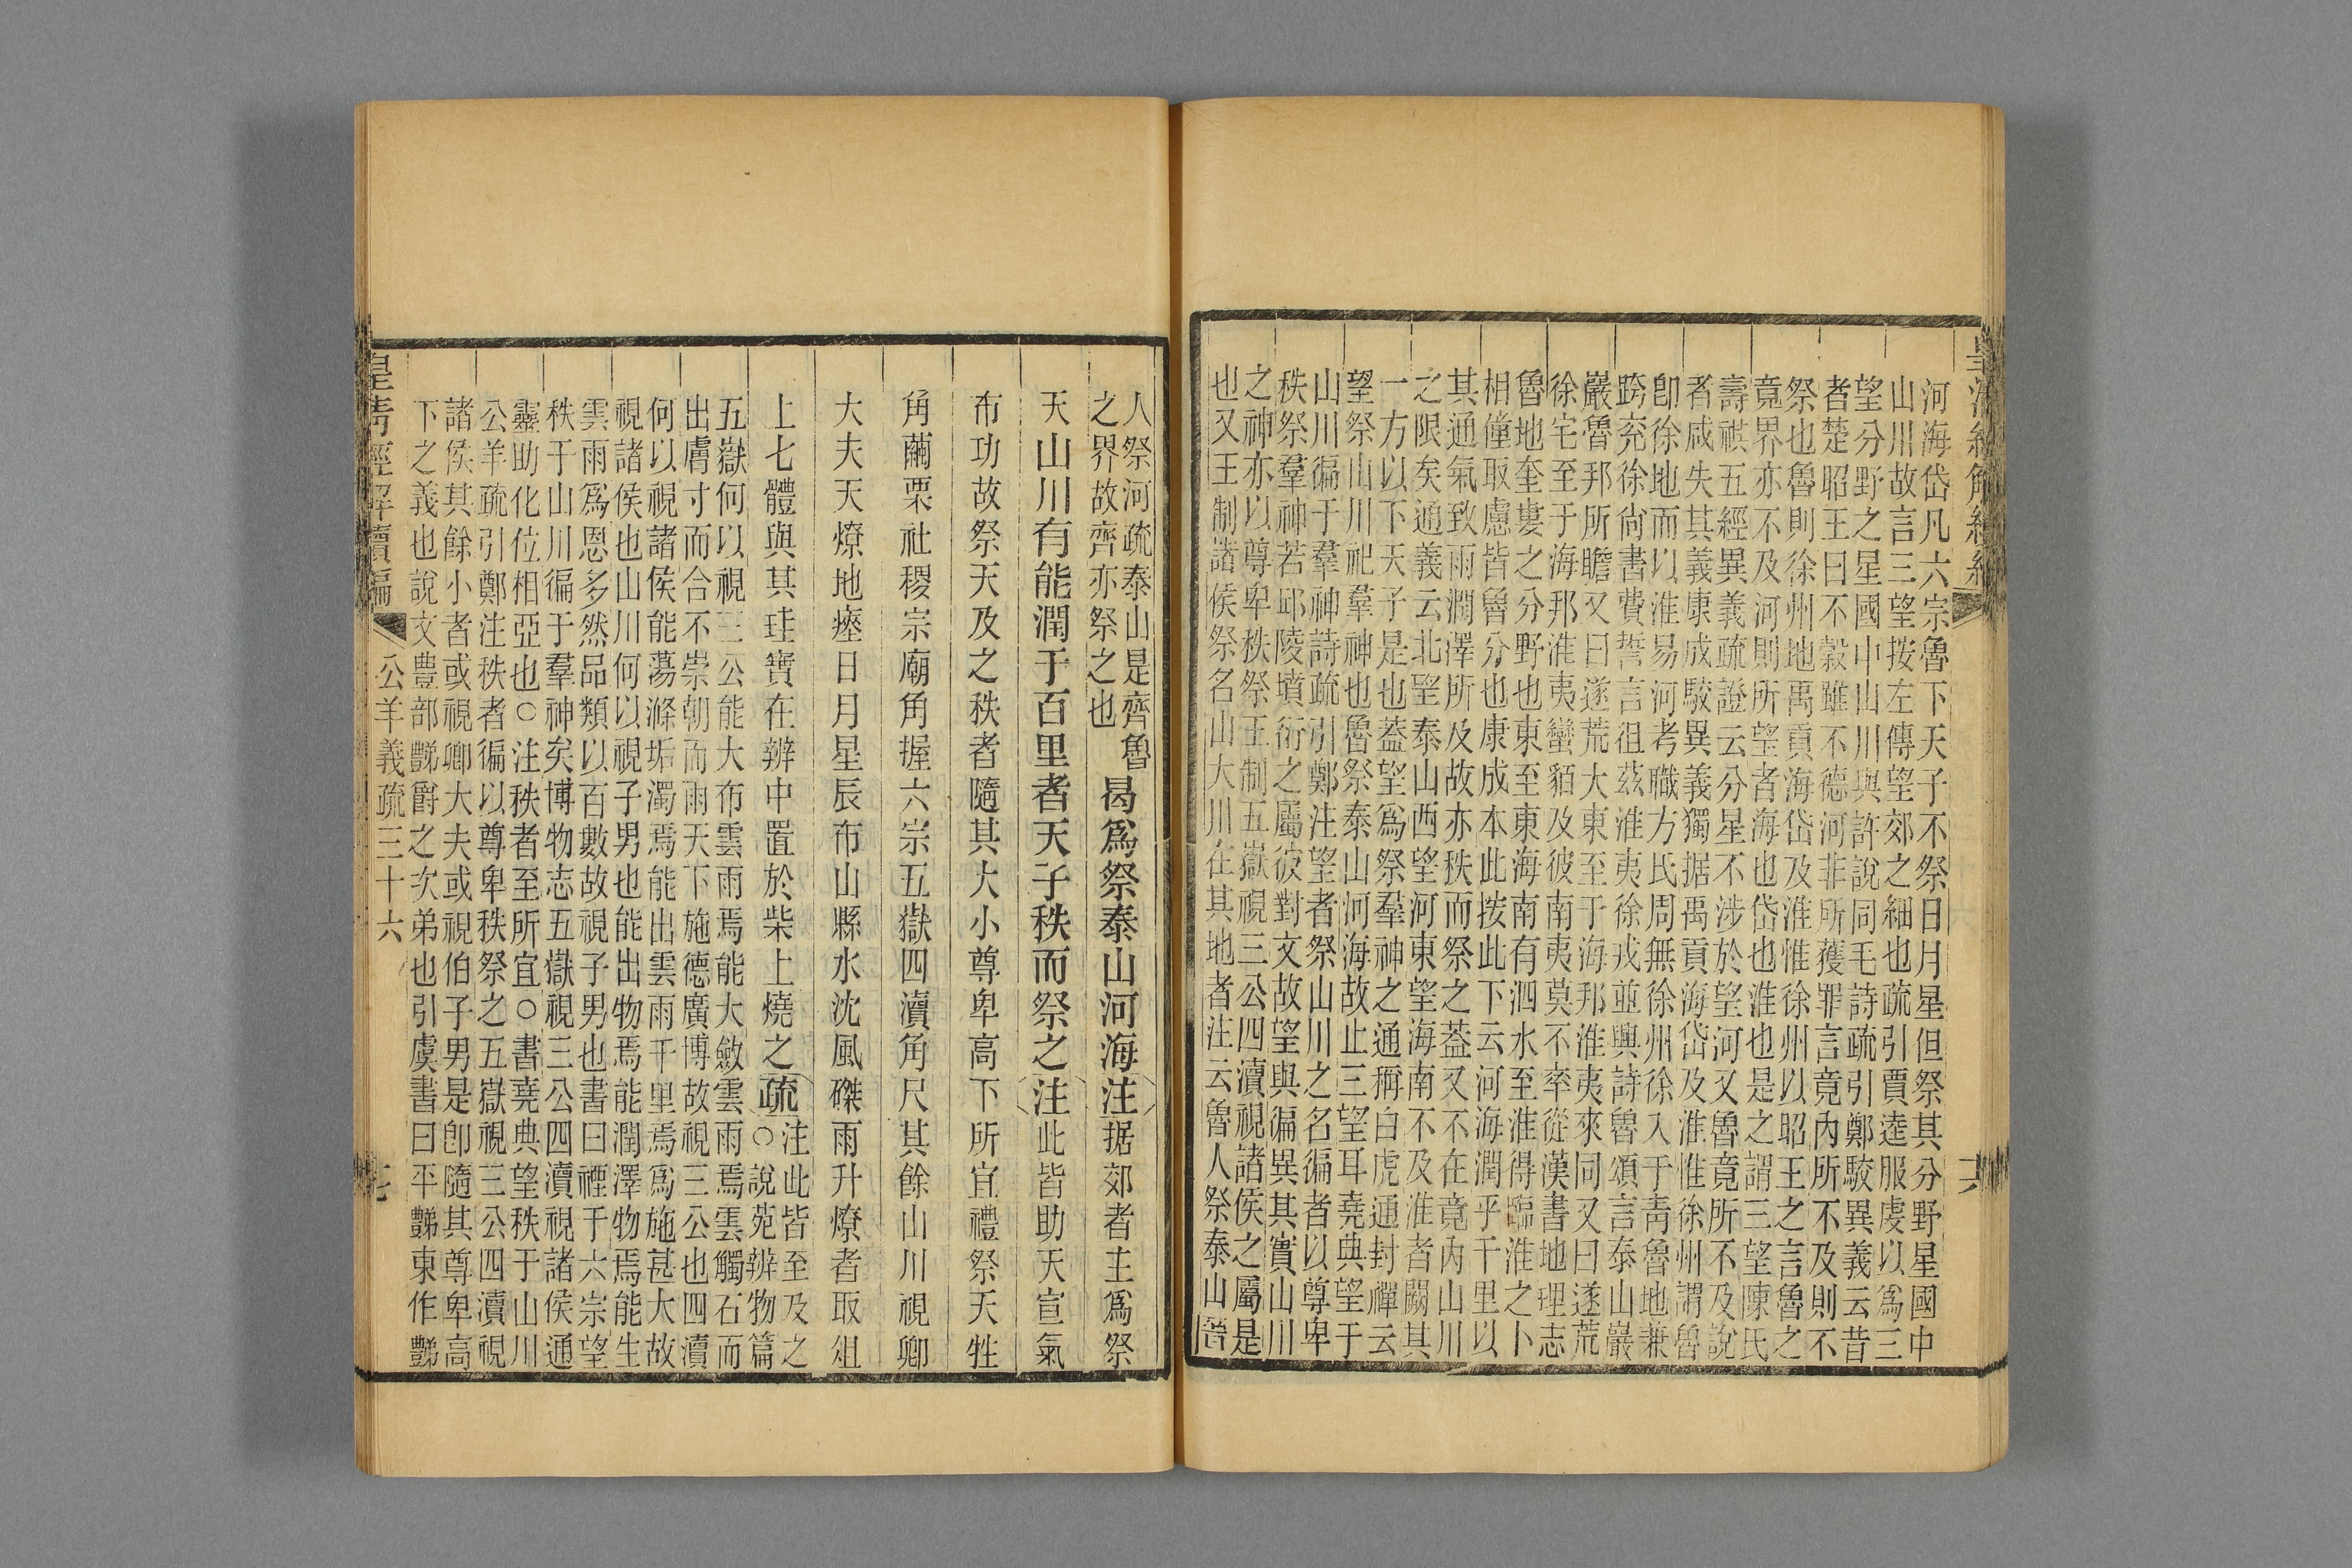 皇清經解續編
六
河海岱凡六宗魯下天子不祭日月星但祭其分野星國中
山川故言三望按左傳望郊之細也疏引賈逵服虔以爲三
望分野之星國中山川與許說同毛詩疏引鄭駮異義云昔
者楚昭王曰不穀雖不德河非所獲罪言竟內所不及則不
祭也魯則徐州地禹貢海岱及淮惟徐州以昭王之言魯之
竟界亦不及河則所望者海也岱也淮也是之謂三望陳氏
壽祺五經異義疏證云分星不涉於望河又魯竟所不及說
者咸失其義康成駮異義獨据禹貢海岱及淮惟徐州謂魯
卽徐地而以淮易河考職方氏周無徐州徐入于靑魯地兼
跨兖徐尙書費誓言徂茲淮夷徐戎並興詩魯頌言泰山巖
巖魯邦所瞻又曰遂荒大東至于海邦淮夷來同又曰遂荒
徐宅至于海邦淮夷蠻貊及彼南夷莫不率從漢書地理志
魯地奎婁之分野也東至東海南有泗水至淮得臨淮之卜
相僮取慮皆魯分也康成本此按此下云河海潤乎千里以
其通氣致雨潤澤所及故亦秩而祭之葢又不在竟內山川
之限矣通義云北望泰山西望河東望海南不及淮者闕其
一方以下天子是也葢望爲祭羣神之通稱白虎通封禪云
望祭山川祀羣神也魯祭泰山河海故止三望耳堯典望于
山川徧于羣神詩疏引鄭注望者祭山川之名徧者以尊卑
秩祭羣神若邱陵墳衍之屬彼對文故望與徧異其實山川
之神亦以尊卑秩祭王制五嶽視三公四瀆視諸侯之屬是
也又王制諸侯祭名山大川在其地者注云魯人祭泰山晉
人祭河疏泰山是齊魯
之界故齊亦祭之也
曷爲祭泰山河海注据郊者主爲祭
天山川有能潤于百里者天子秩而祭之注此皆助天宣氣
布功故祭天及之秩者隨其大小尊卑高下所宜禮祭天牲
角繭栗社稷宗廟角握六宗五嶽四瀆角尺其餘山川視卿
大夫天燎地瘞日月星辰布山縣水沈風磔雨升燎者取俎
上七體與其珪寶在辨中置於柴上燒之疏
注此皆至及之
○說苑辨物篇
五嶽何以視三公能大布雲雨焉能大斂雲雨焉雲觸石而
出膚寸而合不崇朝而雨天下施德廣博故視三公也四瀆
何以視諸侯能蕩滌垢濁焉能出雲雨千里焉爲施甚大故
視諸侯也山川何以視子男也能出物焉能潤澤物焉能生
雲雨爲恩多然品類以百數故視子男也書曰禋于六宗望
秩于山川徧于羣神矣博物志五嶽視三公四瀆視諸侯通
靈助化位相亞也○注秩者至所宜○書堯典望秩于山川
公羊疏引鄭注秩者徧以尊卑秩祭之五嶽視三公四瀆視
諸侯其餘小者或視卿大夫或視伯子男是卽隨其尊卑高
下之義也說文豊部豑爵之次弟也引虞書曰平豑東作豑
皇清經解續編
公羊義疏三十六
七